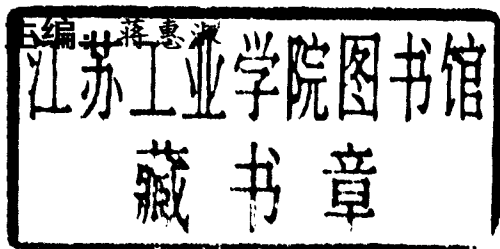 主编 蒋惠淑
江苏工业学院图书馆
藏书章